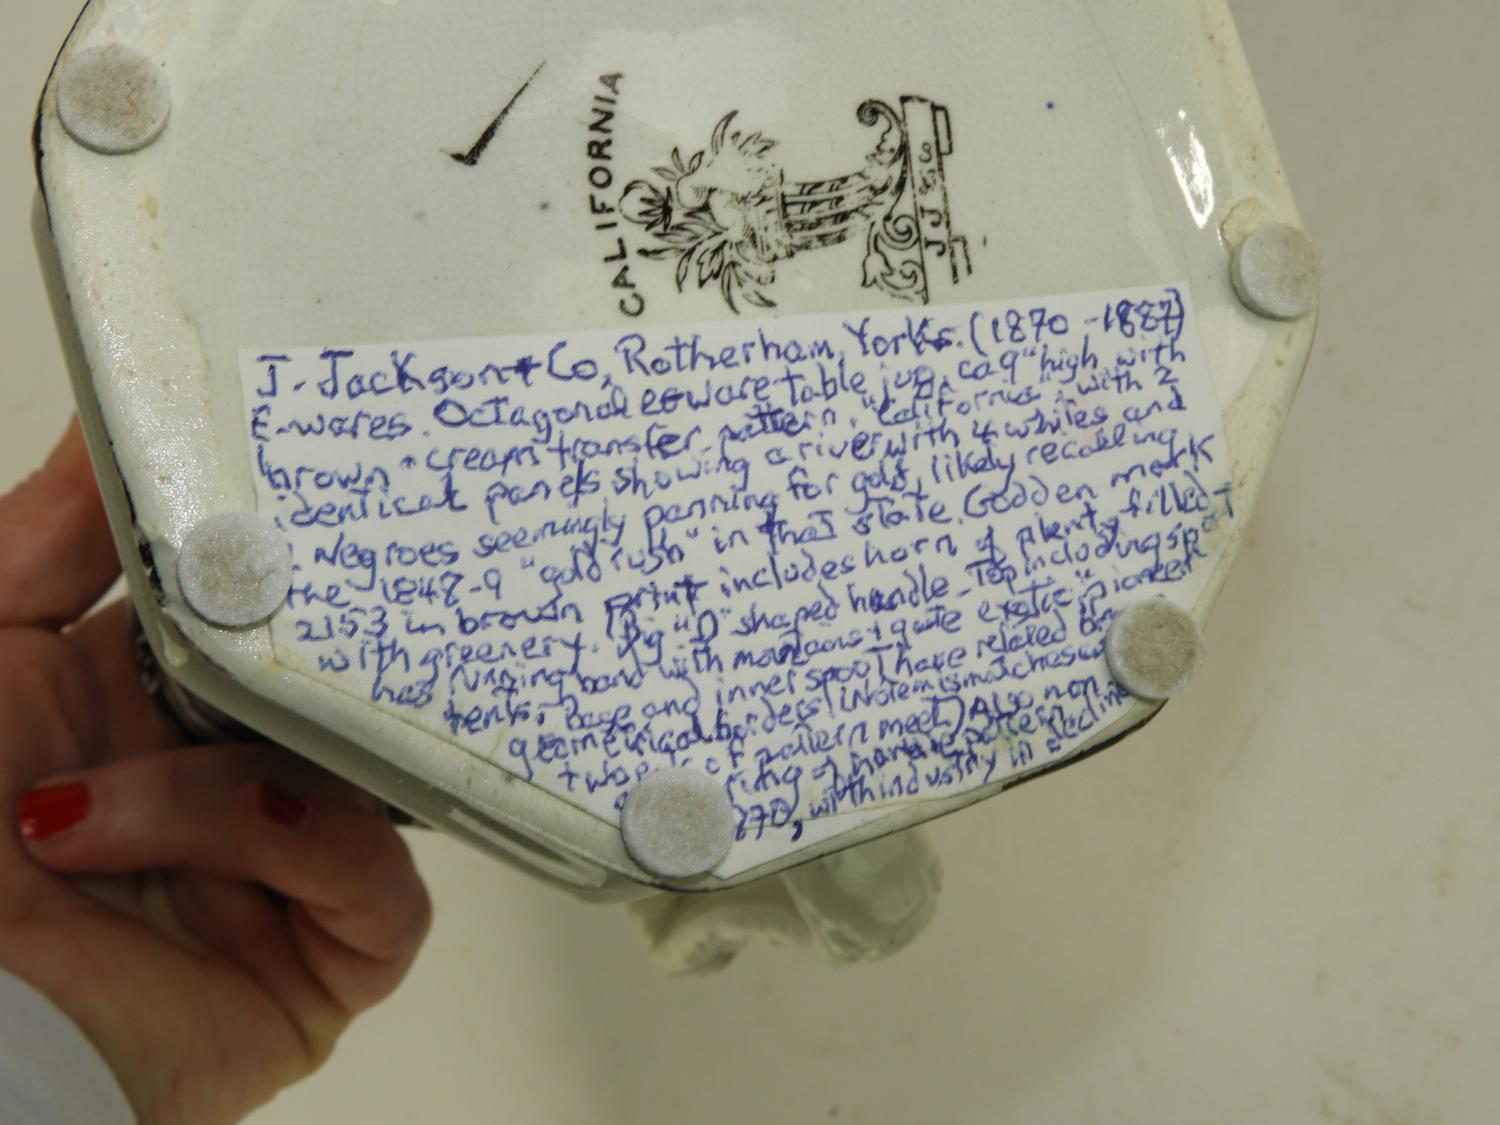 CALIFORNIA
J J & Co
J. Jackson + Co, Rotherham, Yorks. (1870 - 1887)
E-wares. Octagonal eware table jug, ca 9" high with
brown + cream transfer pattern, "California" with 2
identical panels showing a river with 4 whites and
Negroes seemingly panning for gold, likely recalling
the 1848-9 "gold rush" in that state. Godden mark
2153 in brown print includes horn of plenty filled
with greenery. Big "D" shaped handle. Top including spout
has running band with mountains + quite exotic "pioneer"
tents; Base and inner spout have related
geometrical borders (Note mismatches
two of pattern meet) Also non
ring of handle pattern
870, with industry in decline